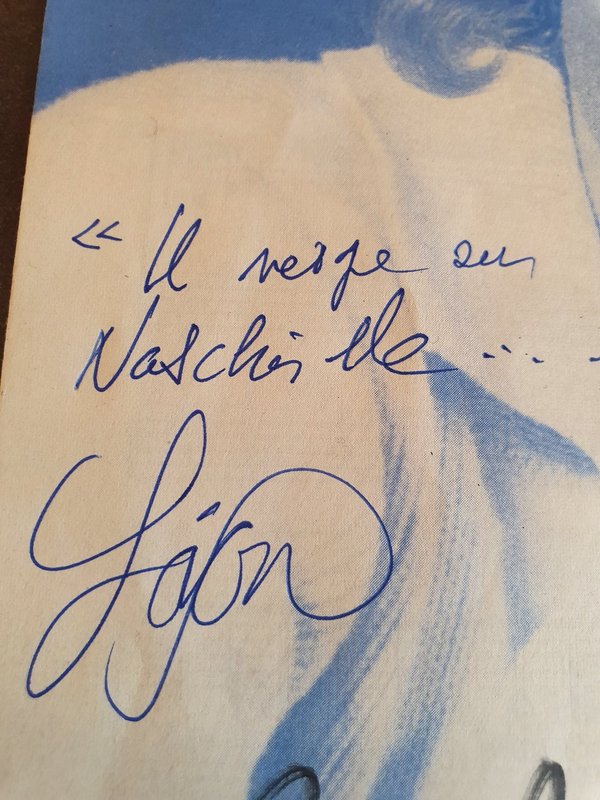 « Il neige sur
Naschville ....